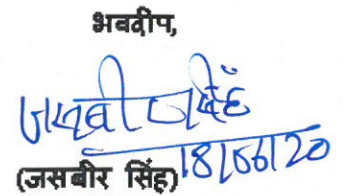 भवदीप,
जसबीर सिंह
18/06/20
(जसबीर सिंह)